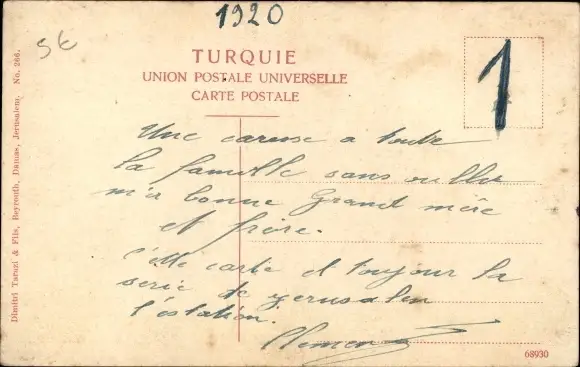 1920
5€
1
TURQUIE
UNION POSTALE UNIVERSELLE
CARTE POSTALE
Dimitri Tarazi & Fils, Beyrouth, Damas, Jerusalem. No. 266.
Une caresse a toute
la famille sans oublier
m'a bonne Grand mère
et frère.
Cette carte et toujour la
serie de Jerusalem
l'estation.
Clemen
68930